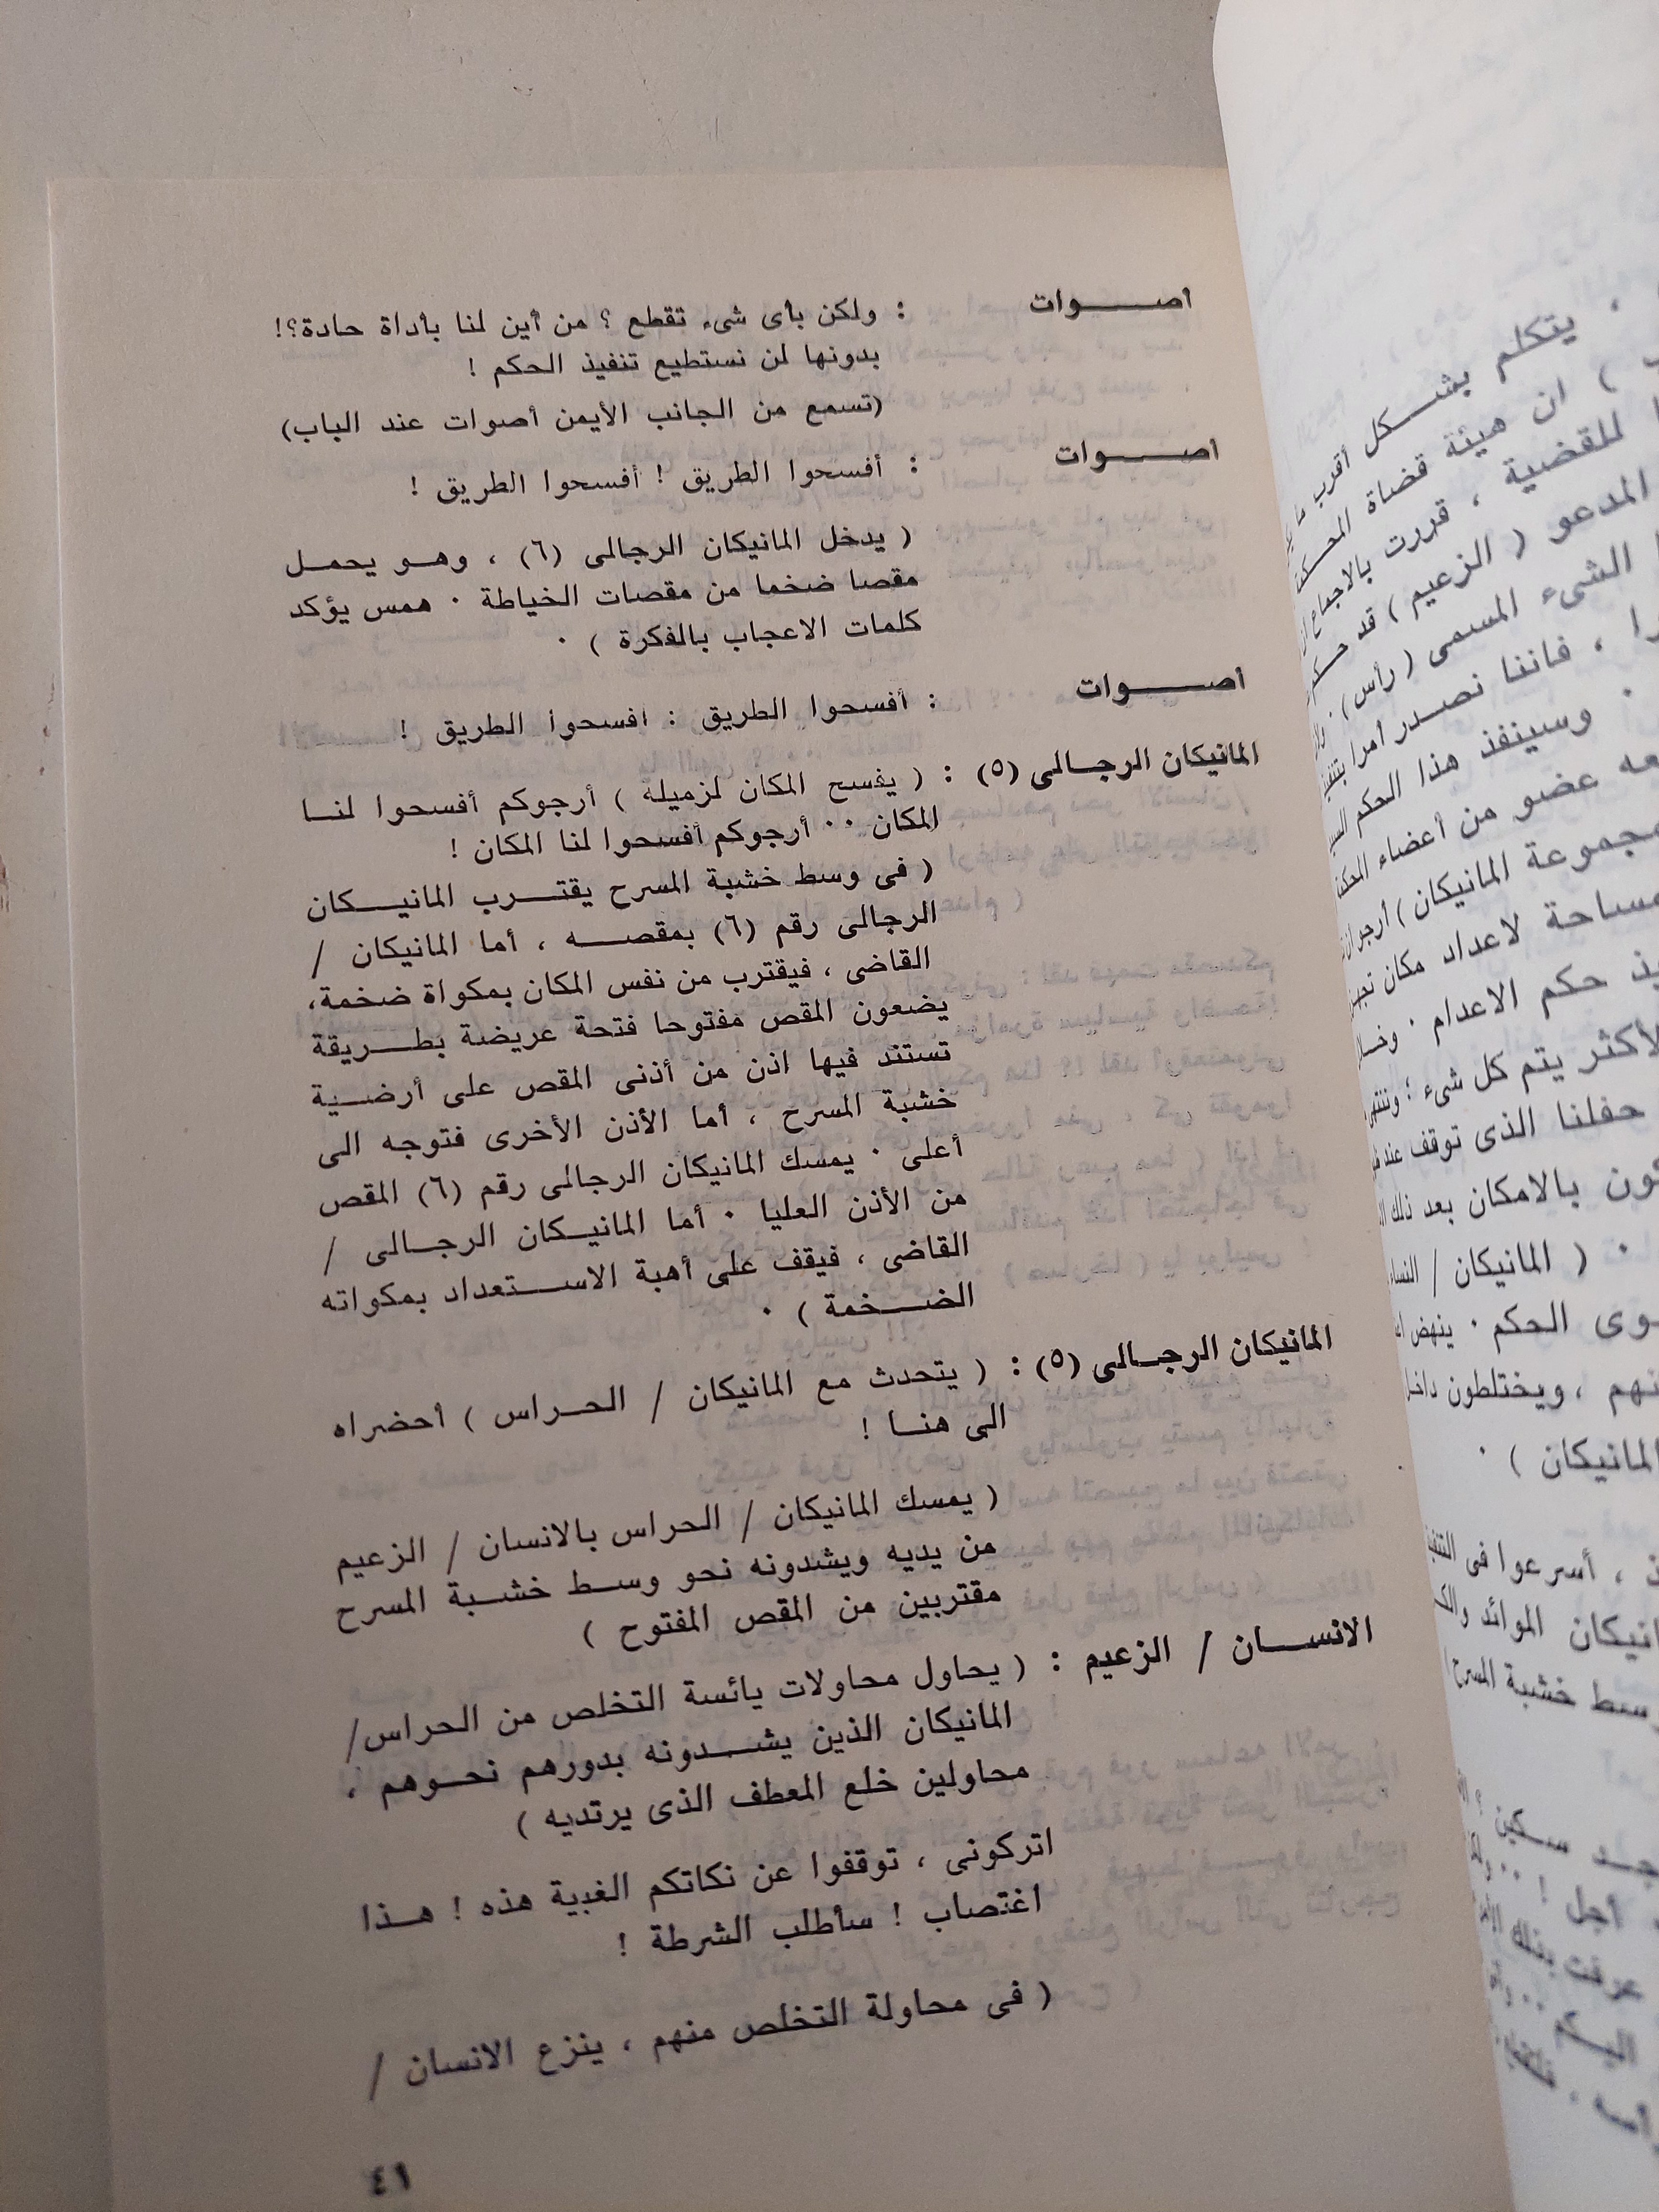 أصـــوات : ولكن بأى شىء تقطع ؟ من أين لنا بأداة حادة؟!
بدونها لن نستطيع تنفيذ الحكم !
(تسمع من الجانب الأيمن أصوات عند الباب)
أصـــوات : أفسحوا الطريق ! أفسحوا الطريق !
( يدخل المانيكان الرجالى (٦) ، وهـو يحمـل
مقصا ضخما من مقصات الخياطة . همس يؤكد
كلمات الاعجاب بالفكرة ) .
أصـــوات : أفسحوا الطريق : افسحوا الطريق !
المانيكان الرجـالى (٥) : ( يفسح المكان لزميله ) أرجوكم أفسحوا لنـا
المكان .. أرجوكم أفسحوا لنا المكان !
( فى وسط خشبة المسرح يقتـرب المانيـكان
الرجالى رقم (٦) بمقصـــه ، أما المانيكان /
القاضى ، فيقترب من نفس المكان بمكواة ضخمة،
يضعون المقص مفتوحا فتحة عريضة بطـريقة
تستند فيها اذن من أذنى المقص على أرضـية
خشبة المسرح ، أما الأذن الأخرى فتوجه الى
أعلى . يمسك المانيكان الرجالى رقم (٦) المقص
من الأذن العليا . أما المانيـكان الرجـالى /
القاضى ، فيقف على أهبة الاسـتعداد بمكواته
الضـخمة ) .
المانيكان الرجـالى (٥) : ( يتحدث مع المانيكان / الحـراس ) أحضراه
الى هنـا !
( يمسك المانيكان / الحراس بالانسان / الزعيم
من يديه ويشدونه نحو وسـط خشـبة المسرح
مقتربين من المقص المفتوح )
الانســان / الزعيم : ( يحاول محاولات يائسة التخلص من الحراس/
المانيكان الذين يشـدونه بدورهم نحـوهم ،
محاولين خلع المعطف الذى يرتديه )
اتركونى ، توقفوا عن نكاتكم الغبية هذه ! هـذا
اغتصاب ! سأطلب الشرطة !
( فى محاولة التخلص منهم ، ينزع الانسان /
٤١
. يتكلم بشـكل أقرب ما
) ان هيئة قضاة المحـكمة
للقضية ، قررت بالاجماع
المدعو ( الزعيم ) قد حكم
الشىء المسمى ( رأس) .
، فاننا نصـدر أمرا بتنفيذ
. وسينفذ هذا الحكم
عضو من أعضاء المحكمة
المانيكان ) أرجو
لاعداد مكان
حكم الاعدام .
يتم كل شىء ؛
حفلنا الذى توقف عند
بالامكان بعد ذلك
. ( المانيكان /
الحكم . ينهض
، ويختلطون داخل
المانيكان ) .
، أسرعوا فى
الموائد
خشبة المسرح
سـكين
أجل ! ..
عرفت